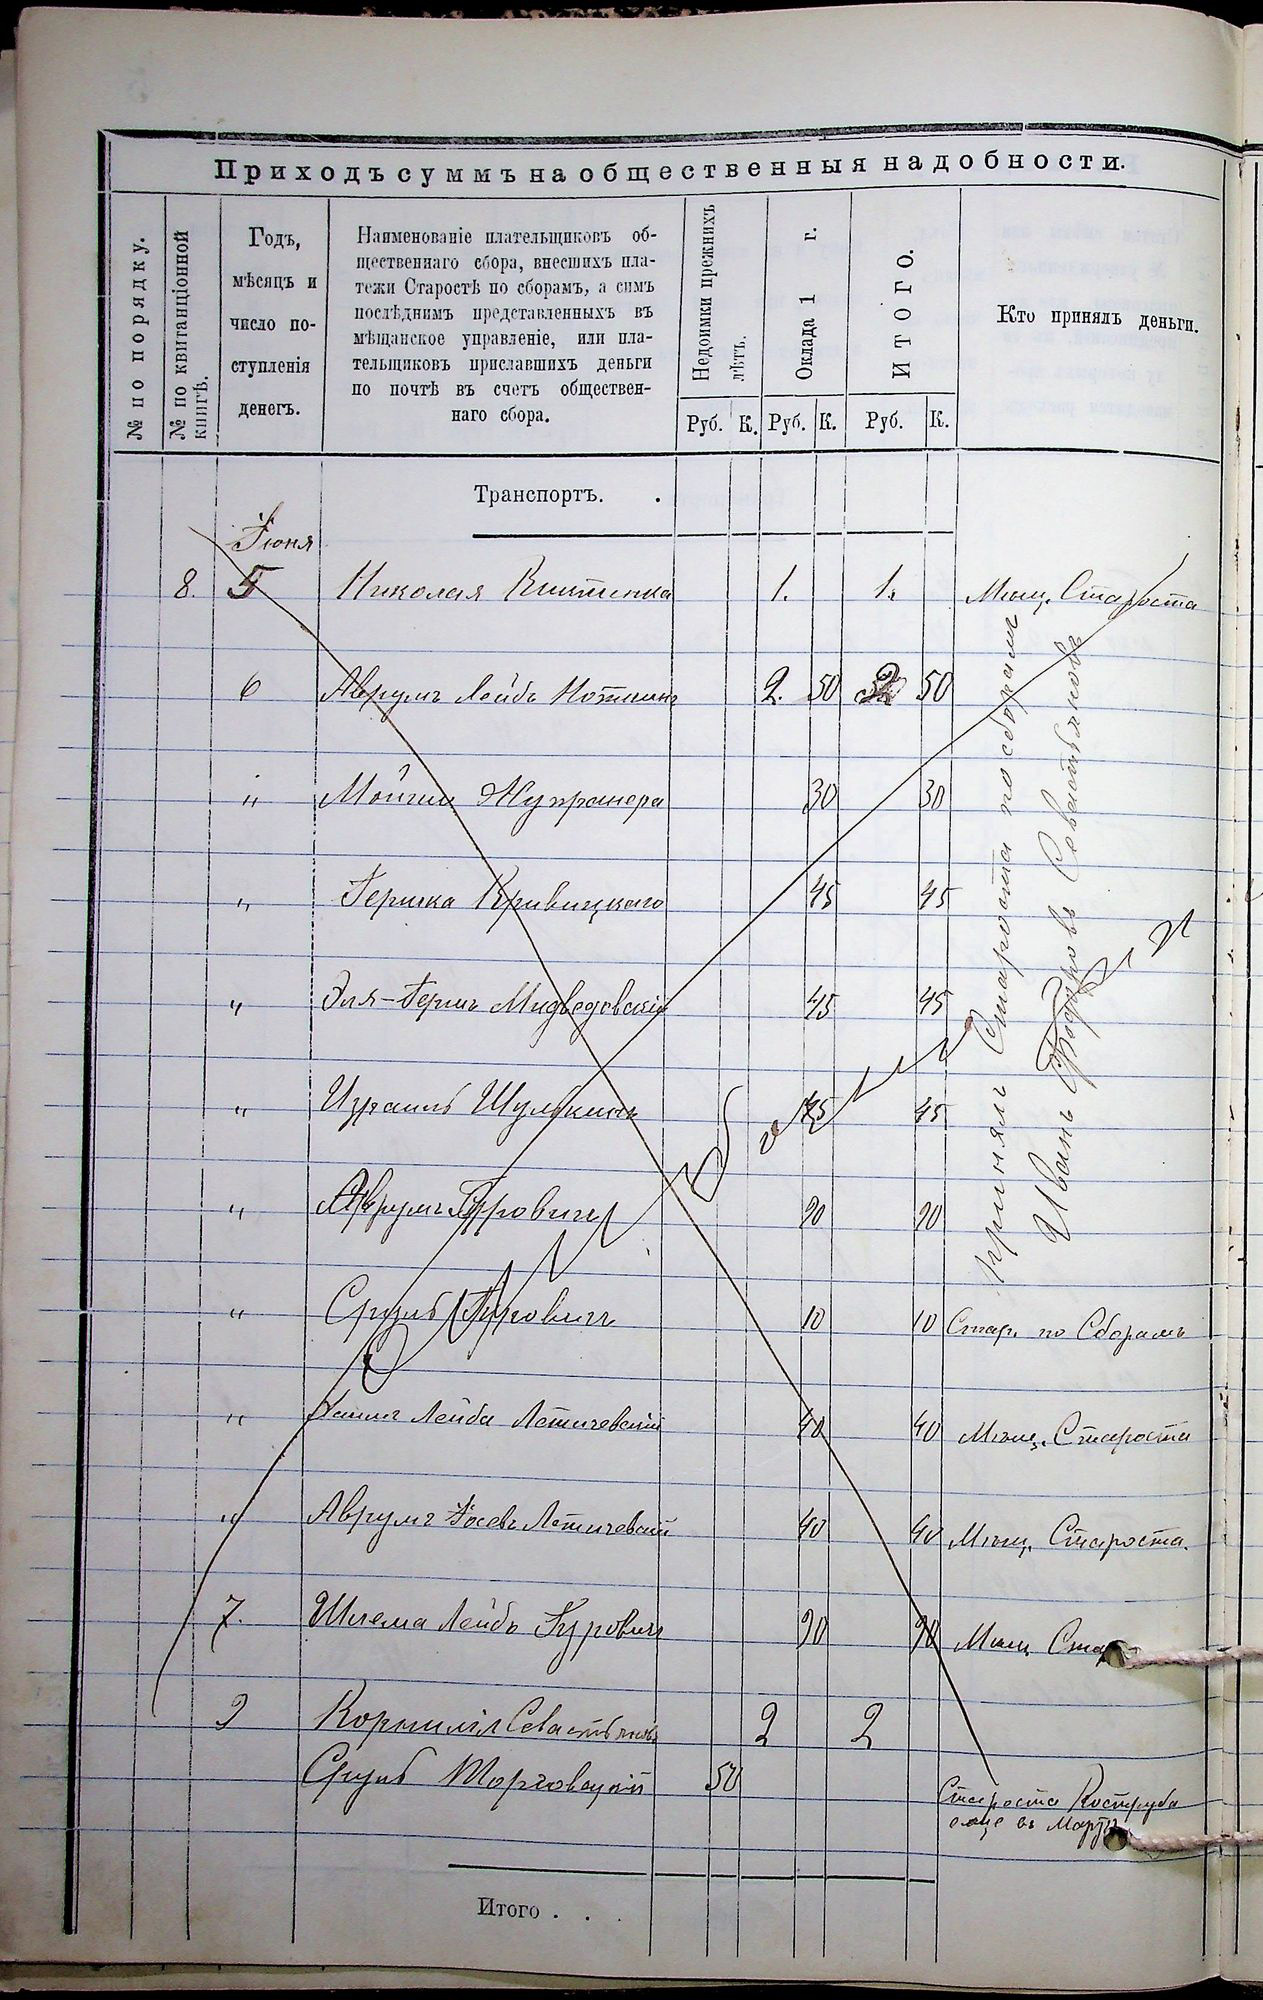 Приходъ суммъ на общественныя надобности.
№ по порядку.
№ по квитанціонной книгѣ.
Годъ,
мѣсяцъ и
число по-
ступленія
денегъ.
Наименованіе плательщиковъ об-
щественнаго сбора, внесшихъ пла-
тежи Старостѣ по сборамъ, а симъ
послѣднимъ представленныхъ въ
мѣщанское управленіе, или пла-
тельщиковъ приславшихъ деньги
по почтѣ въ счетъ обществен-
наго сбора.
Недоимки прежнихъ лѣтъ.
Оклада 1 г.
Итого.
Кто принялъ деньги.
Руб. К. Руб. К. Руб. К.
Транспортъ. .
Іюня
8. 5 Николая 1. 1. Мѣщ. Староста
6 Аврумъ Лейбъ 2. 50 2 50
" 30 30
" Гершка Кривицкаго 45 45
" Эля-Гершъ Мидведовскій 45 45
" Израиль Шулькинъ 45 45
" Аврумъ Гуровичъ 90 90
" Сруль Гуровичъ 10 10 Стар. по Сборамъ
" Хаимъ Лейба Летичевскій 40 40 Мѣщ. Староста
" Аврумъ Іосевъ Летичевскій 40 40 Мѣщ. Староста.
7. Шлема Лейбъ Гуровичъ 90 90 Мѣщ. Стар
9 Корнилія Севастьяновъ 2 2
Сруль Торговецкій 50 Староста Коструба
еще въ Мартѣ
принялъ Староста по сборамъ
Иванъ Федоровъ Севастьяновъ
Итого . . .